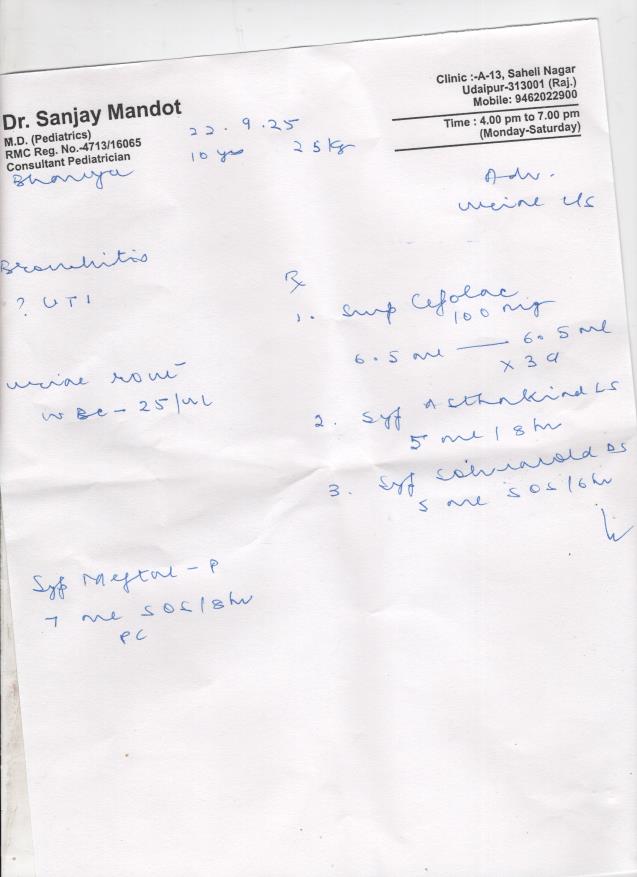 Dr. Sanjay Mandot
M.D. (Pediatrics)
RMC Reg. No.-4713/16065
Consultant Pediatrician
Clinic :-A-13, Saheli Nagar
Udaipur-313001 (Raj.)
Mobile: 9462022900
Time : 4.00 pm to 7.00 pm
(Monday-Saturday)
22.9.25
10 yrs 25 kg
Adv.
urine c/s
Bronchitis
? UTI
urine rout
WBC - 25/uL
Rx
1. Syrup Cefolac
100 mg
6.5 ml — 6.5 ml
x 3 d
2. Syp Asthakind LS
5 ml / 8 hr
3. Syp DS
5 ml SOS / 6 hr
Syp Meftal - P
7 ml SOS / 8 hr
PC